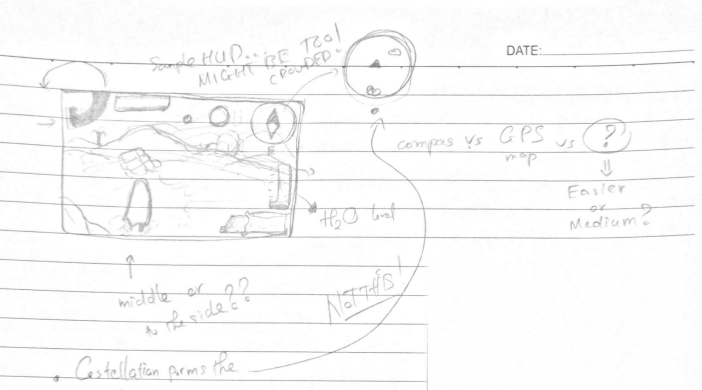 Sample HUD... MIGHT BE TOO!
CROWDED?
DATE:
compas vs GPS vs ?
map
Easier
or
Medium?
E
H2O level
middle or
to the side??
NOT THIS!
• Costellation forms the